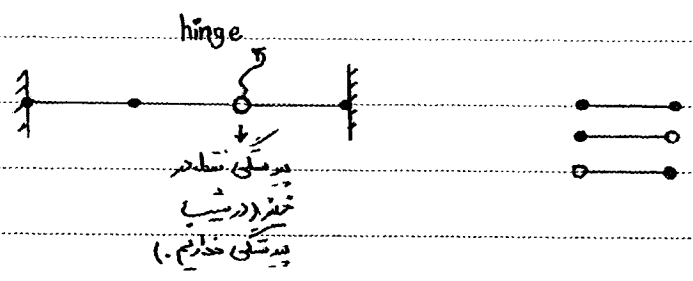 hinge
پیوستگی فقط در
خیز (در شیب
پیوستگی نداریم.)